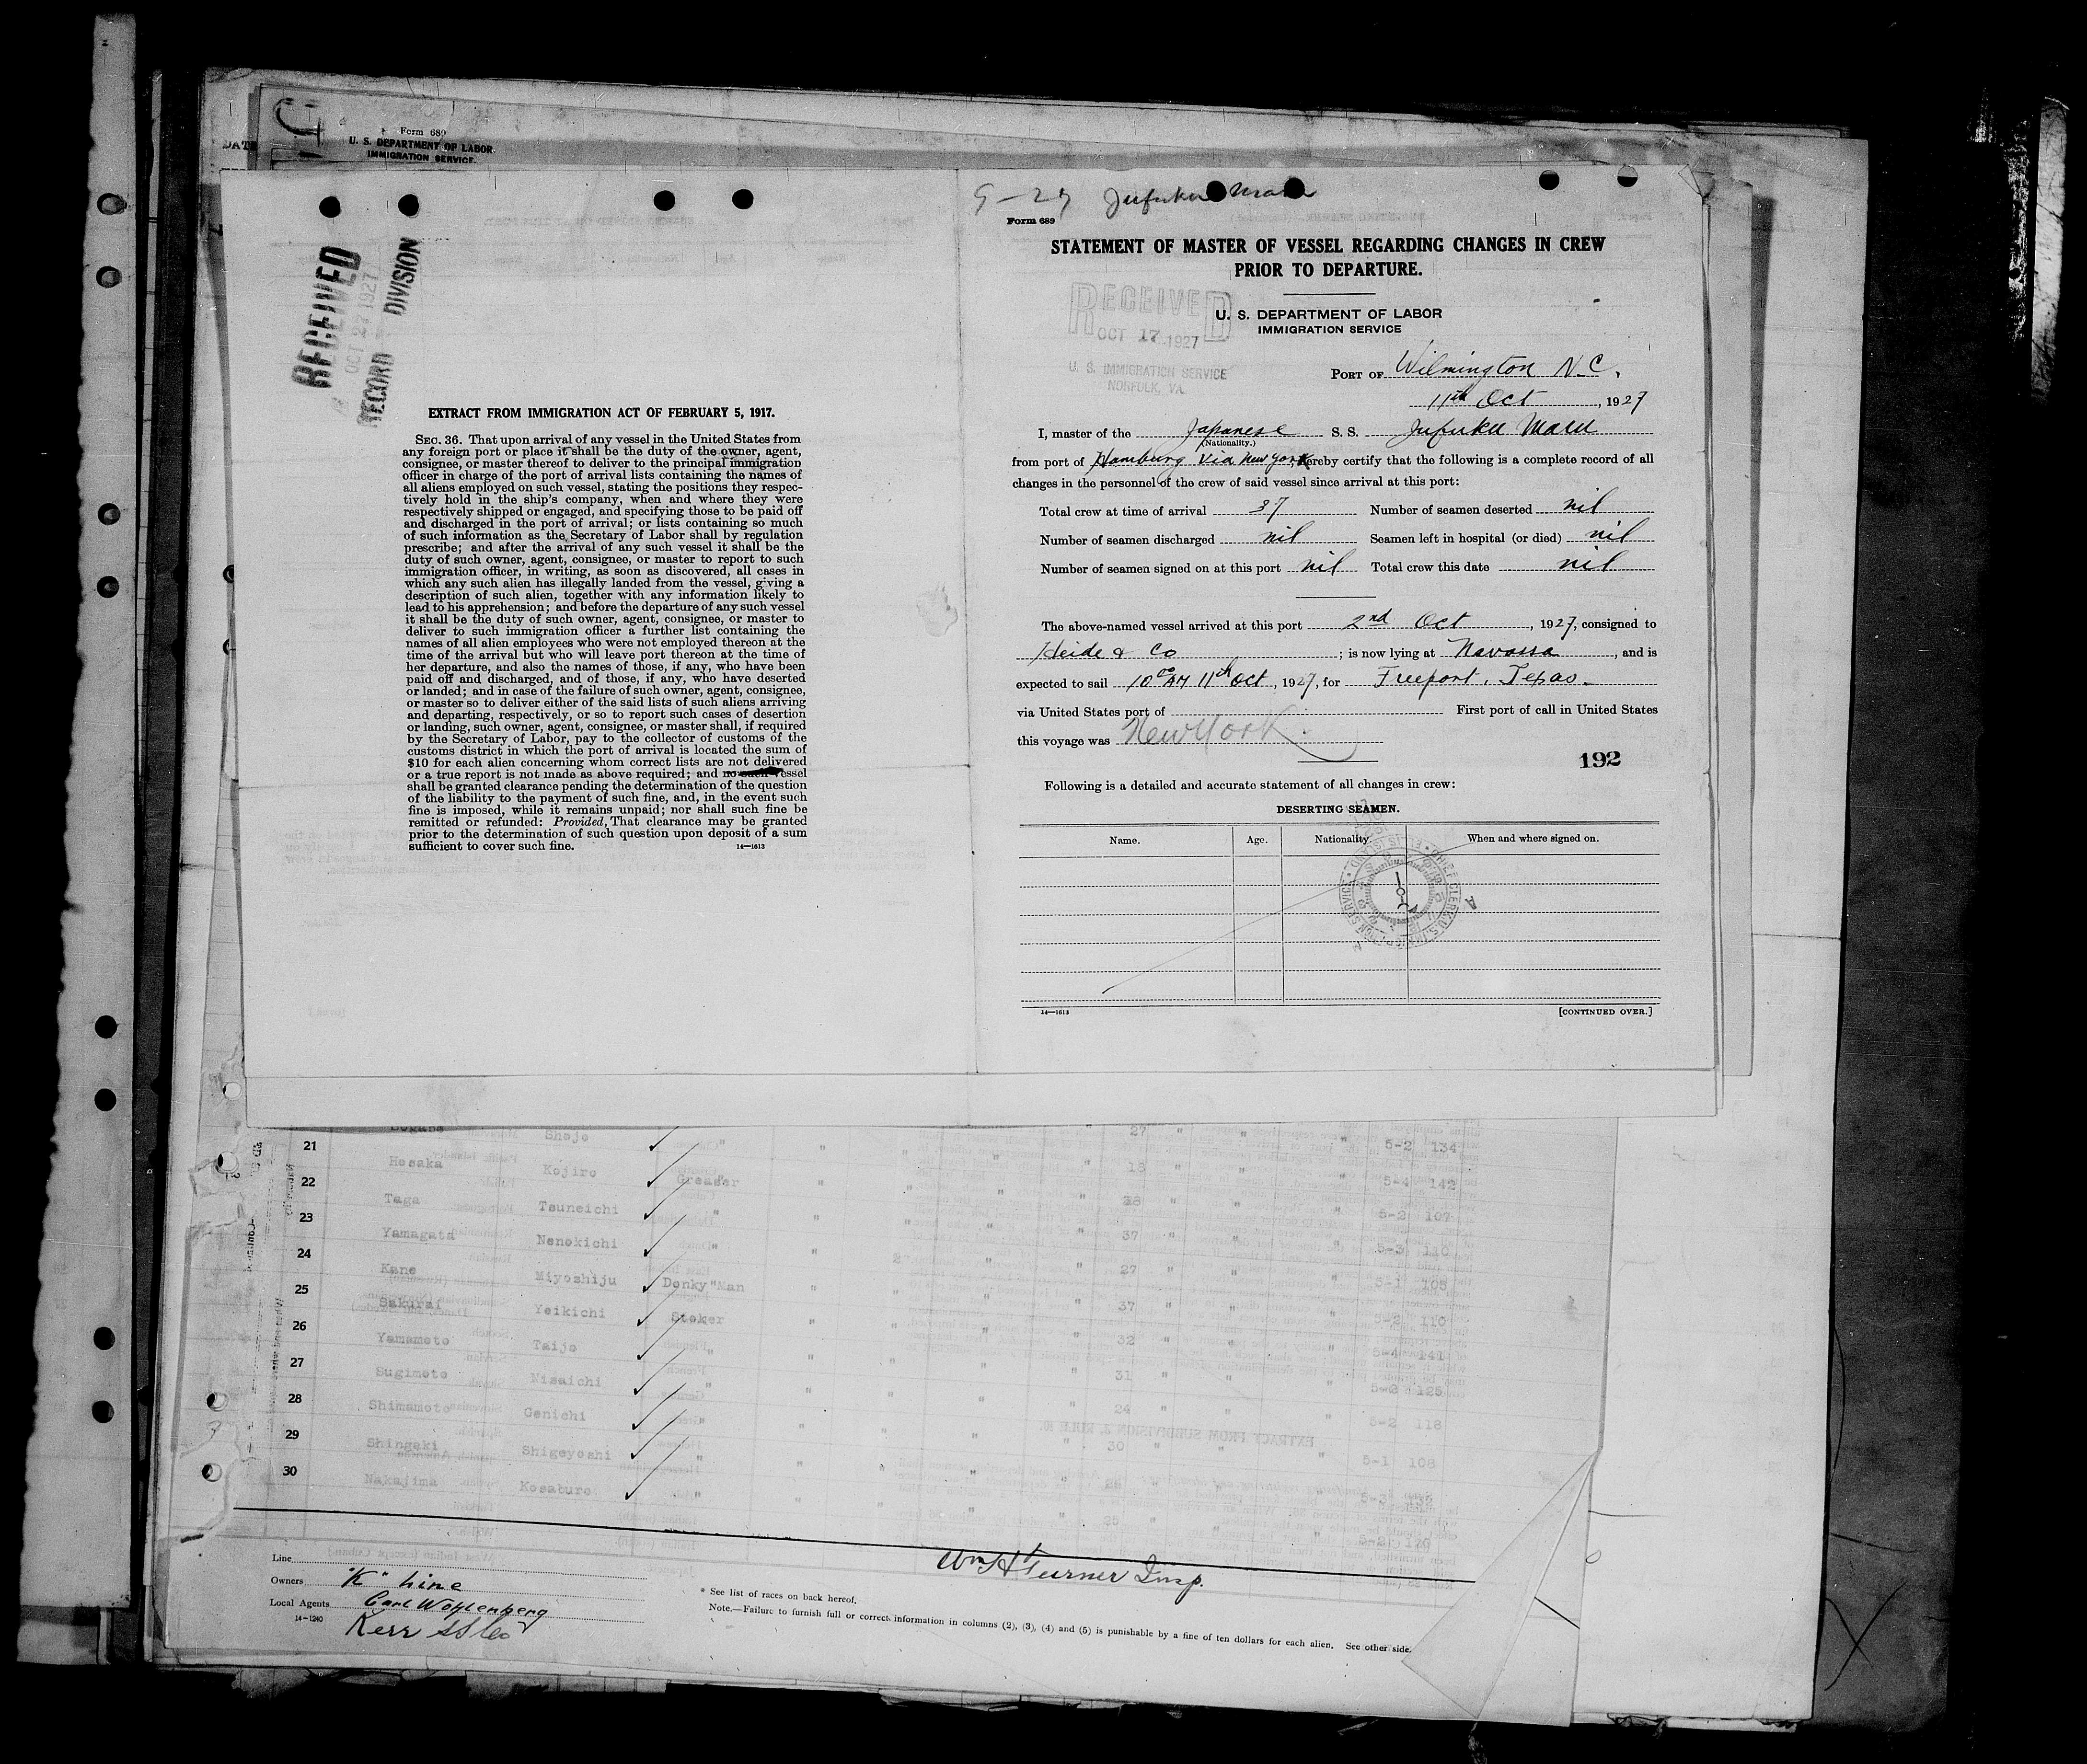 Form 689
U. S. DEPARTMENT OF LABOR
IMMIGRATION SERVICE.
DATE
RECEIVED
OCT 27 1927
RECORD DIVISION
EXTRACT FROM IMMIGRATION ACT OF FEBRUARY 5, 1917.
SEC. 36. That upon arrival of any vessel in the United States from
any foreign port or place it shall be the duty of the owner, agent,
consignee, or master thereof to deliver to the principal immigration
officer in charge of the port of arrival lists containing the names of
all aliens employed on such vessel, stating the positions they respec-
tively hold in the ship's company, when and where they were
respectively shipped or engaged, and specifying those to be paid off
and discharged in the port of arrival; or lists containing so much
of such information as the Secretary of Labor shall by regulation
prescribe; and after the arrival of any such vessel it shall be the
duty of such owner, agent, consignee, or master to report to such
immigration officer, in writing, as soon as discovered, all cases in
which any such alien has illegally landed from the vessel, giving a
description of such alien, together with any information likely to
lead to his apprehension; and before the departure of any such vessel
it shall be the duty of such owner, agent, consignee, or master to
deliver to such immigration officer a further list containing the
names of all alien employees who were not employed thereon at the
time of the arrival but who will leave port thereon at the time of
her departure, and also the names of those, if any, who have been
paid off and discharged, and of those, if any, who have deserted
or landed; and in case of the failure of such owner, agent, consignee,
or master so to deliver either of the said lists of such aliens arriving
and departing, respectively, or so to report such cases of desertion
or landing, such owner, agent, consignee, or master shall, if required
by the Secretary of Labor, pay to the collector of customs of the
customs district in which the port of arrival is located the sum of
$10 for each alien concerning whom correct lists are not delivered
or a true report is not made as above required; and no such vessel
shall be granted clearance pending the determination of the question
of the liability to the payment of such fine, and, in the event such
fine is imposed, while it remains unpaid; nor shall such fine be
remitted or refunded: Provided, That clearance may be granted
prior to the determination of such question upon deposit of a sum
sufficient to cover such fine.
14—1613
9-27 Jufuku Maru
Form 689
STATEMENT OF MASTER OF VESSEL REGARDING CHANGES IN CREW
PRIOR TO DEPARTURE.
RECEIVED
OCT 17 1927
U. S. IMMIGRATION SERVICE
NORFOLK, VA.
U. S. DEPARTMENT OF LABOR
IMMIGRATION SERVICE
PORT OF Wilmington N.C.,
11th Oct, 1927
I, master of the Japanese S. S. Jufuku Maru
(Nationality.)
from port of Hamburg via New York, hereby certify that the following is a complete record of all
changes in the personnel of the crew of said vessel since arrival at this port:
Total crew at time of arrival 37 Number of seamen deserted nil
Number of seamen discharged nil Seamen left in hospital (or died) nil
Number of seamen signed on at this port nil Total crew this date nil
The above-named vessel arrived at this port 2nd Oct, 1927, consigned to
Heide & Co; is now lying at Navassa, and is
expected to sail 10 00 AM 11th Oct, 1927, for Freeport, Texas.
via United States port of First port of call in United States
this voyage was New York.
192
Following is a detailed and accurate statement of all changes in crew:
DESERTING SEAMEN.
Name. Age. Nationality. When and where signed on.
14—1613 [CONTINUED OVER.]
21 Shojo 27 " 5-2 134
22 Hosaka Kojiro Greaser " 18 5-4 142
23 Taga Tsuneichi " 28 " 5-2 107
24 Yamagata Nenokichi " 37 " 5-3 110
25 Kane Miyoshiju Donky Man " 27 " 5-1 105
26 Sakurai Yeikichi Stoker " 37 " 5-2 110
27 Yamamoto Taijo " 32 " 5-4 141
28 Sugimoto Nisaichi " 31 " 5-2 125
29 Shimamoto Genichi " 24 " 5-2 118
30 Shingaki Shigeyoshi " 30 " 5-1 108
Nakajima Kosaburo
Line
Owners "K" Line
Local Agents Carl Wohlenberg
14-1240
Kerr SS Co
Wm H Turner Insp.
* See list of races on back hereof.
Note.—Failure to furnish full or correct information in columns (2), (3), (4) and (5) is punishable by a fine of ten dollars for each alien. See other side.